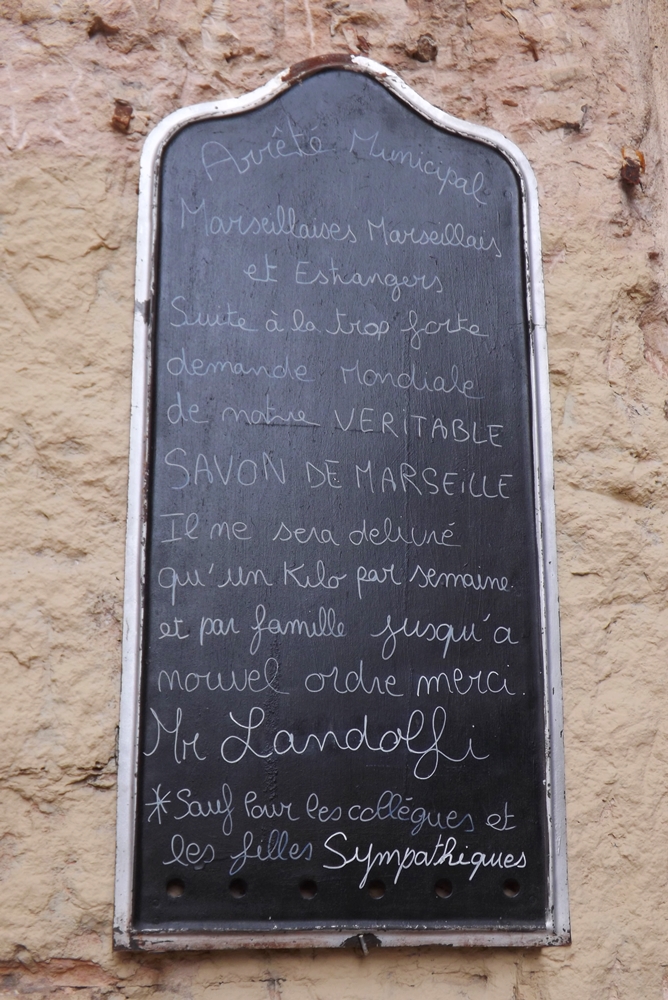 Arrêté Municipal
Marseillaises Marseillais
et Estrangers
Suite à la trop forte
demande Mondiale
de notre VERITABLE
SAVON DE MARSEILLE
Il ne sera délivré
qu'un Kilo par semaine
et par famille jusqu'a
nouvel ordre merci.
Mr Landolfi
*Sauf Pour les collègues et
les filles Sympathiques